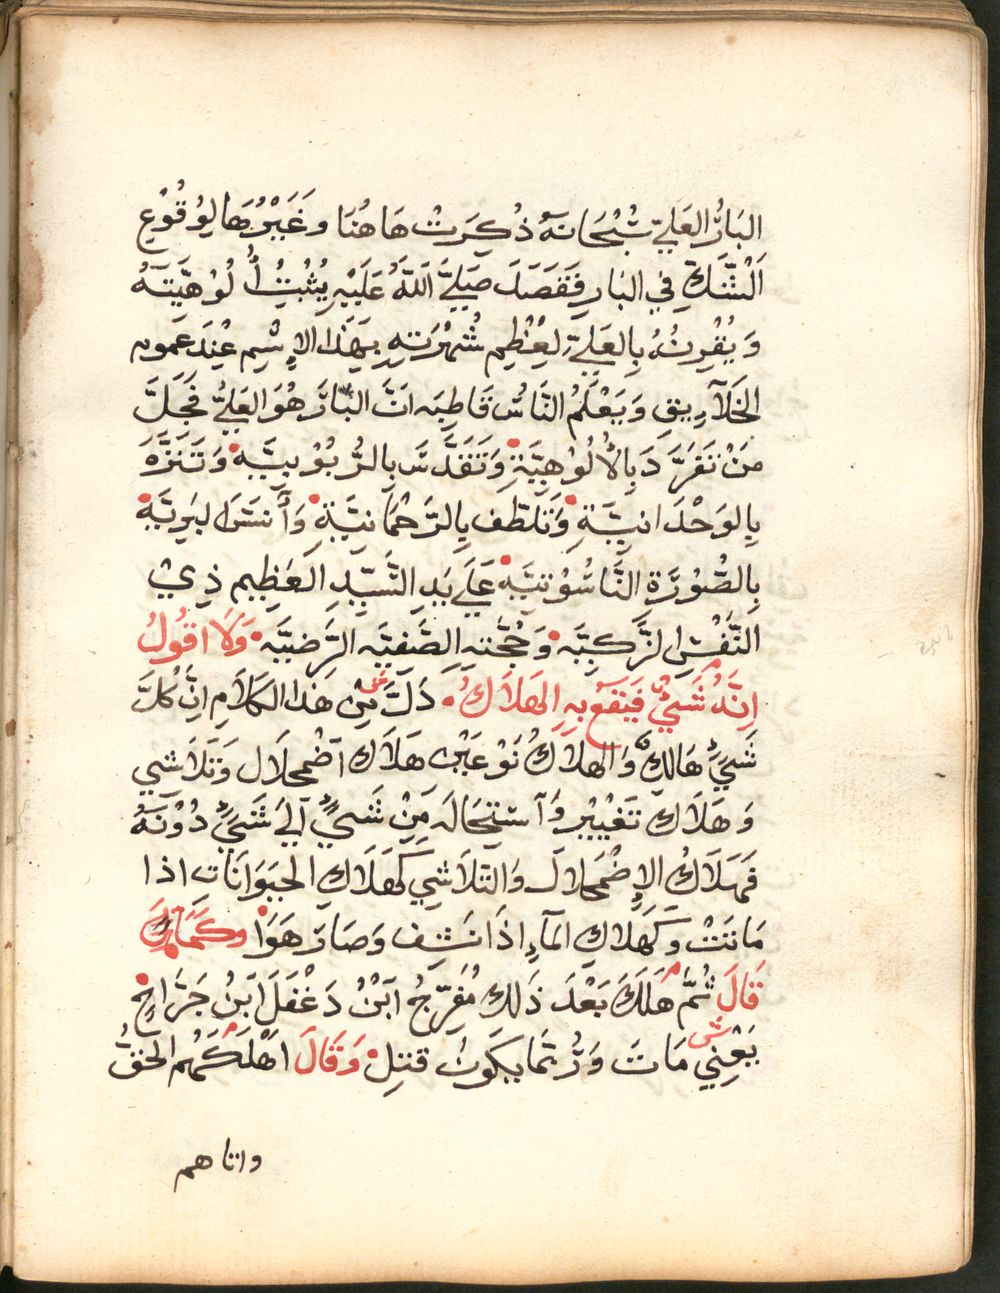 البَارُّ العَلِيّ سُبْحَانَهُ ذُكِرَتْ هَاهُنَا وغَيْرُهَا لِوُقُوْعِ
اَلْشَّكِّ فِي البَارِ فَقَصَدَ صَلَّى اَللَهُ عَلَيْهِ يُثْبُتُ أُلُوْهِيَّتَهُ
وَيُقْرِنُهُ بِالعَلِيِّ لِعُظْمِ شُهْرَتِهِ بِهَذَا الاِسْمِ عِنْدَ عموم
الخَلَآرِيقِ وَيَعْلَمُ النَّاسُ قَاطِبَه اَنَّ البَارَّ هُوَ العَلِيُّ فَجَلَّ
مَنْ تَفَرَّدَ بِالأُلُوْهِيَّةِ وَتَقَدَّسَ بِالرُّبُوْبِيَّه وَتَنَزَّهَ
بِالوَحْدَانِيَّةِ وَتَلَطَّف بِالرَّحْمَانِيَّةِ وَأَنَسَ لبَرِيَّةِ
بِالصُّوْرَةِ النَّاسُوْتِيَّه عَلَى يَدِ السَّيِّدِ العَظِيمِ ذِيْ
النَّفْسِ الزَّكِيَّه وَحُجَّته الصَّفيَّه الرَّضيَّه وَلَا اقُولُ
اِنَّهُ شَيْءٌ فَيَقَعُ بِهِ الهَلَاكُ دَلَّ عَلى مِنْ هَذَا الكَلَامِ انّ كُلَّ
شَيْءٍ هَالِكٌ وَالهَلَاكُ نَوْعَيْن هَلَاك اضْمحلَال وَتَلَاشي
وَهَلَاك تَغْيِيْرٍ وَآسْتِحَالَه مِنْ شَيْءٍ اَلَى شَيْءٍ دُوْنَهُ
فَهَلَاكُ الاِضْمَحلَال وَالتَّلَاشي كَهَلَاكِ الحَيَوَانَات اذا
مَاتَتْ وَكَهَلَاكِ المَآءِ اذَا نَشِف وَصَارَ هَوَا وكَمَا
قَالَ ثُمَّ هَلَكَ بَعْدَ ذَلِكَ مُفَرِّجُ ابْنُ دَغْفَلَ ابْنُ جَرَّاحٍ
يَعْنِي مَاتَ وَرُبَّمَا يكونُ قتل وَقَالَ اهْلَكَهُم الحَقُّ
واتاهم